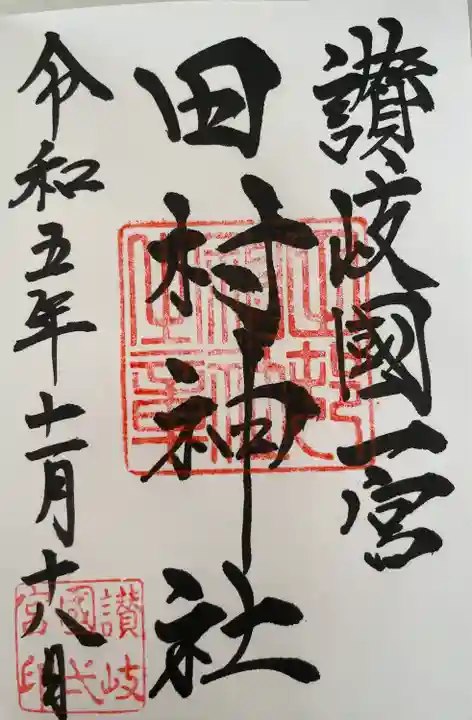 讃岐國一宮
田村神社
令和五年十一月十八日
讃岐
國弌
宮印